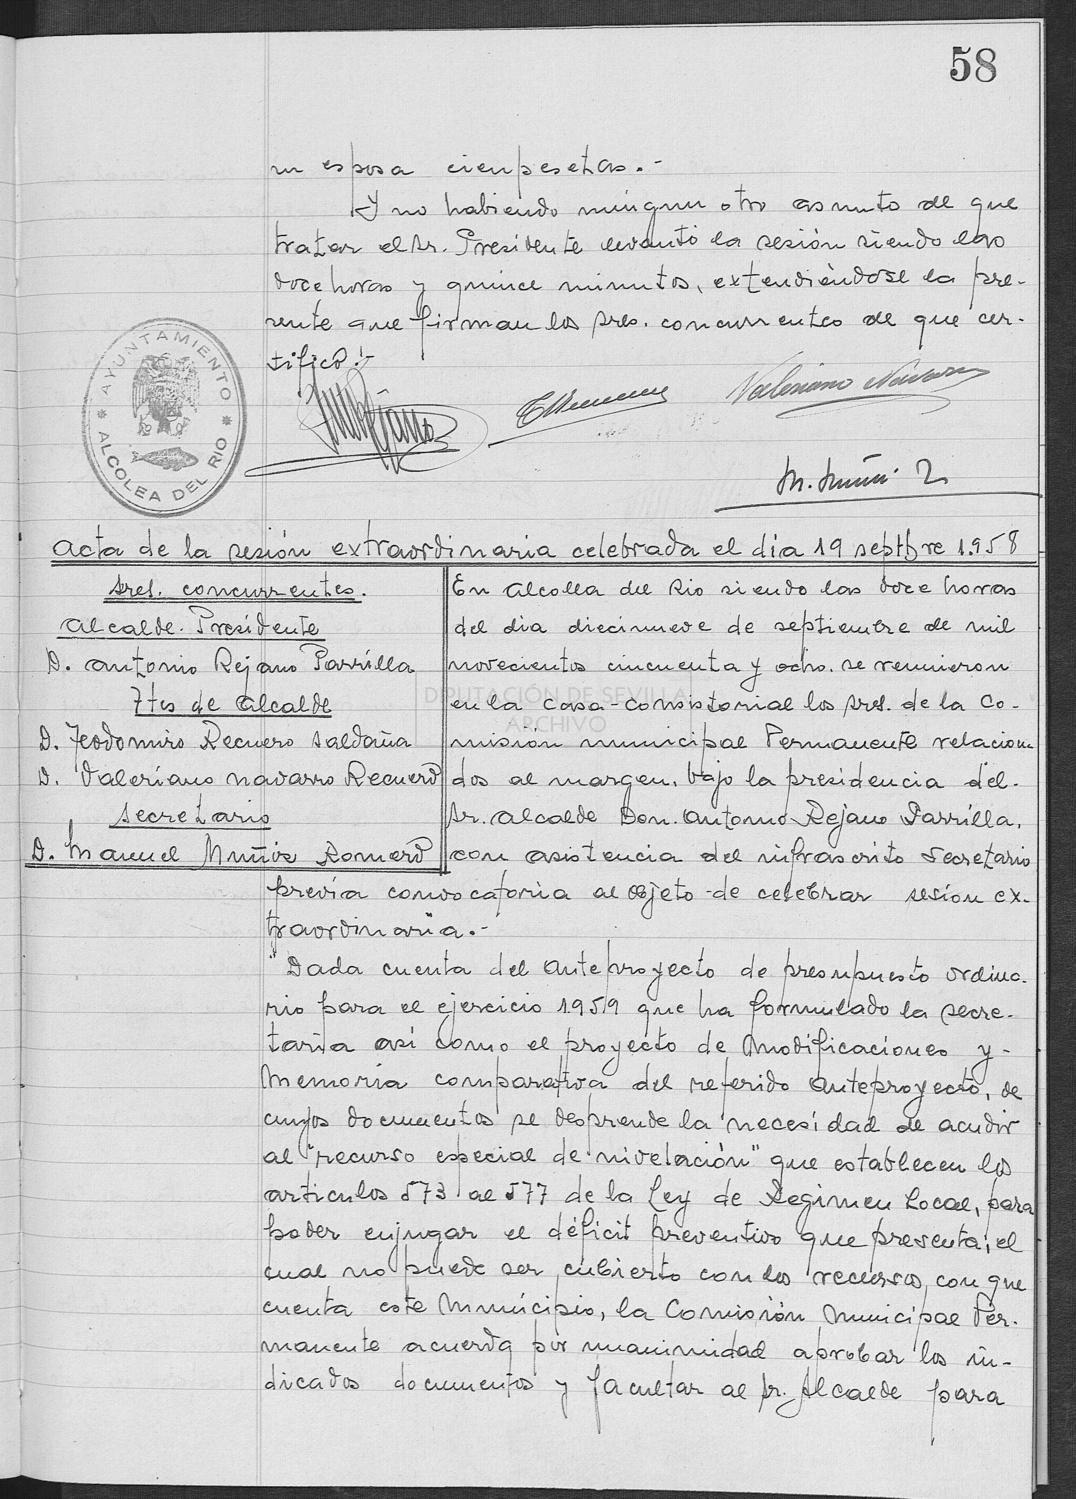 58
su esposa cien pesetas.-
Y no habiendo ningun otro asunto de que
tratar el Sr. Presidente levantó la sesión siendo las
doce horas y quince minutos, extendiéndose la pre-
sente que firman los Sres. concurrentes de que cer-
tifico.-
AYUNTAMIENTO
* ALCOLEA DEL RIO *
Valeriano Navarro
M. Muñiz
Acta de la sesión extraordinaria celebrada el dia 19 septbre 1.958
Sres. concurrentes.
Alcalde. Presidente
D. Antonio Rejano Parrilla
Ttes de Alcalde
D. Teodomiro Recuero Saldaña
D. Valeriano Navarro Recuero
Secretario
D. Manuel Muñiz Romero
En Alcolea del Rio siendo las doce horas
del dia diecinueve de septiembre de mil
novecientos cincuenta y ocho. se reunieron
en la Casa-Consistorial los Sres. de la Co-
misión municipal Permanente relaciona
dos al margen, bajo la presidencia del-
Sr. Alcalde Don. Antonio Rejano Parrilla,
con asistencia del infrascrito Secretario
previa convocatoria al objeto de celebrar sesión ex-
traordinaria.-
"Dada cuenta del anteproyecto de presupuesto ordina-
rio para el ejercicio 1.959 que ha formulado la secre-
taria asi como el proyecto de Modificaciones y-
Memoria comparativa del referido anteproyecto, de
cuyos documentos se desprende la necesidad de acudir
al "recurso especial de nivelación" que establecen los
articulos 573 al 577 de la Ley de Regimen Local, para
poder enjugar el déficit preventivo que presenta, el
cual no puede ser cubierto con los recursos con que
cuenta este Municipio, la Comisión Municipal Per-
manente acuerda por unanimidad aprobar los in-
dicados documentos y facultar al Sr. Alcalde para
DIPUTACIÓN DE SEVILLA
ARCHIVO